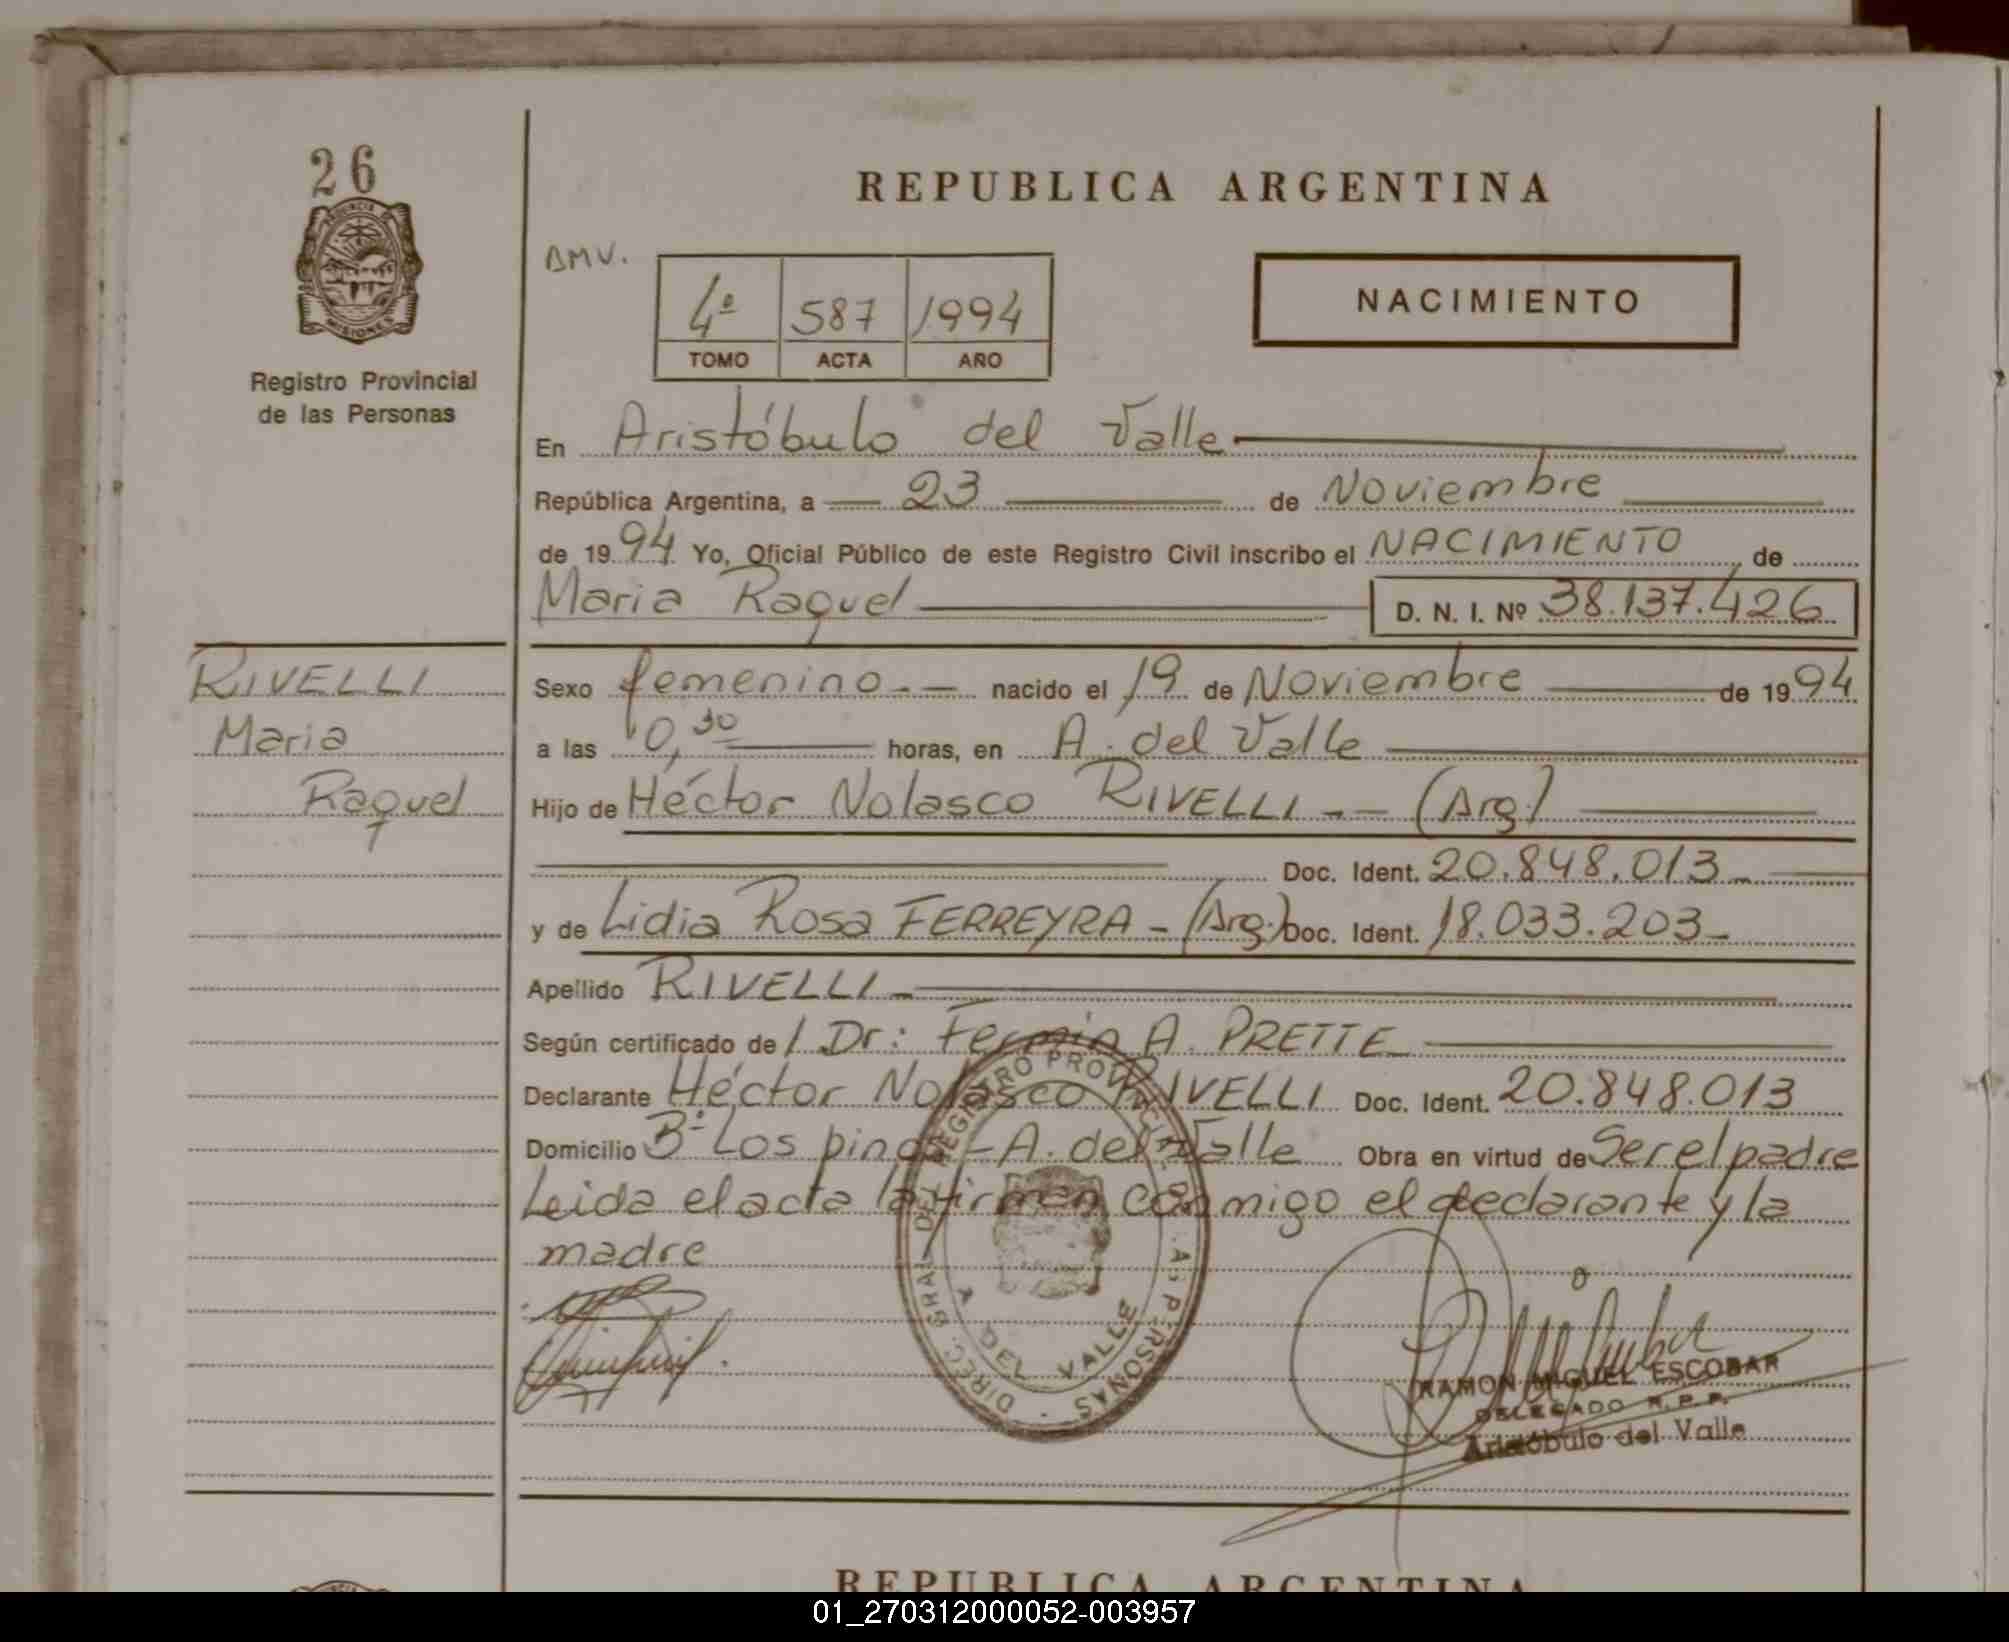 26
PROVINCIA DE
MISIONES
Registro Provincial
de las Personas
REPUBLICA ARGENTINA
BMV.
4º 587 1994
TOMO ACTA AÑO
NACIMIENTO
En Aristóbulo del Valle
República Argentina, a 23 de Noviembre
de 19 94 Yo, Oficial Público de este Registro Civil inscribo el NACIMIENTO de
Maria Raquel D. N. I. Nº 38.137.426
RIVELLI
Maria
Raquel
Sexo femenino.- nacido el 19 de Noviembre de 19 94
a las 0,30 horas, en A. del Valle
Hijo de Héctor Nolasco RIVELLI -- (Arg.)
Doc. Ident. 20.848.013-
y de Lidia Rosa FERREYRA - (Arg.) Doc. Ident. 18.033.203-
Apellido RIVELLI-
Según certificado de / Dr: Fermin A. PRETTE
Declarante Héctor Nolasco RIVELLI Doc. Ident. 20.848.013
Domicilio Bº Los pinos - A. del Valle Obra en virtud de Ser el padre
Leida el acta la firman conmigo el declarante y la
madre
DIREC. GRAL. DEL REGISTRO PROVINCIAL DE LAS PERSONAS
A. DEL VALLE
RAMON MIGUEL ESCOBAR
DELEGADO R.P.P.
Aristóbulo del Valle
REPUBLICA ARGENTINA
01_270312000052-003957